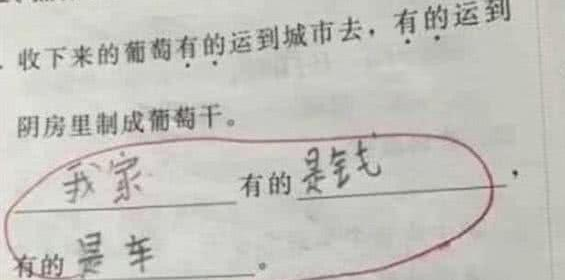 收下来的葡萄有的运到城市去，有的运到
阴房里制成葡萄干。
我家有的是钱，
有的是车。